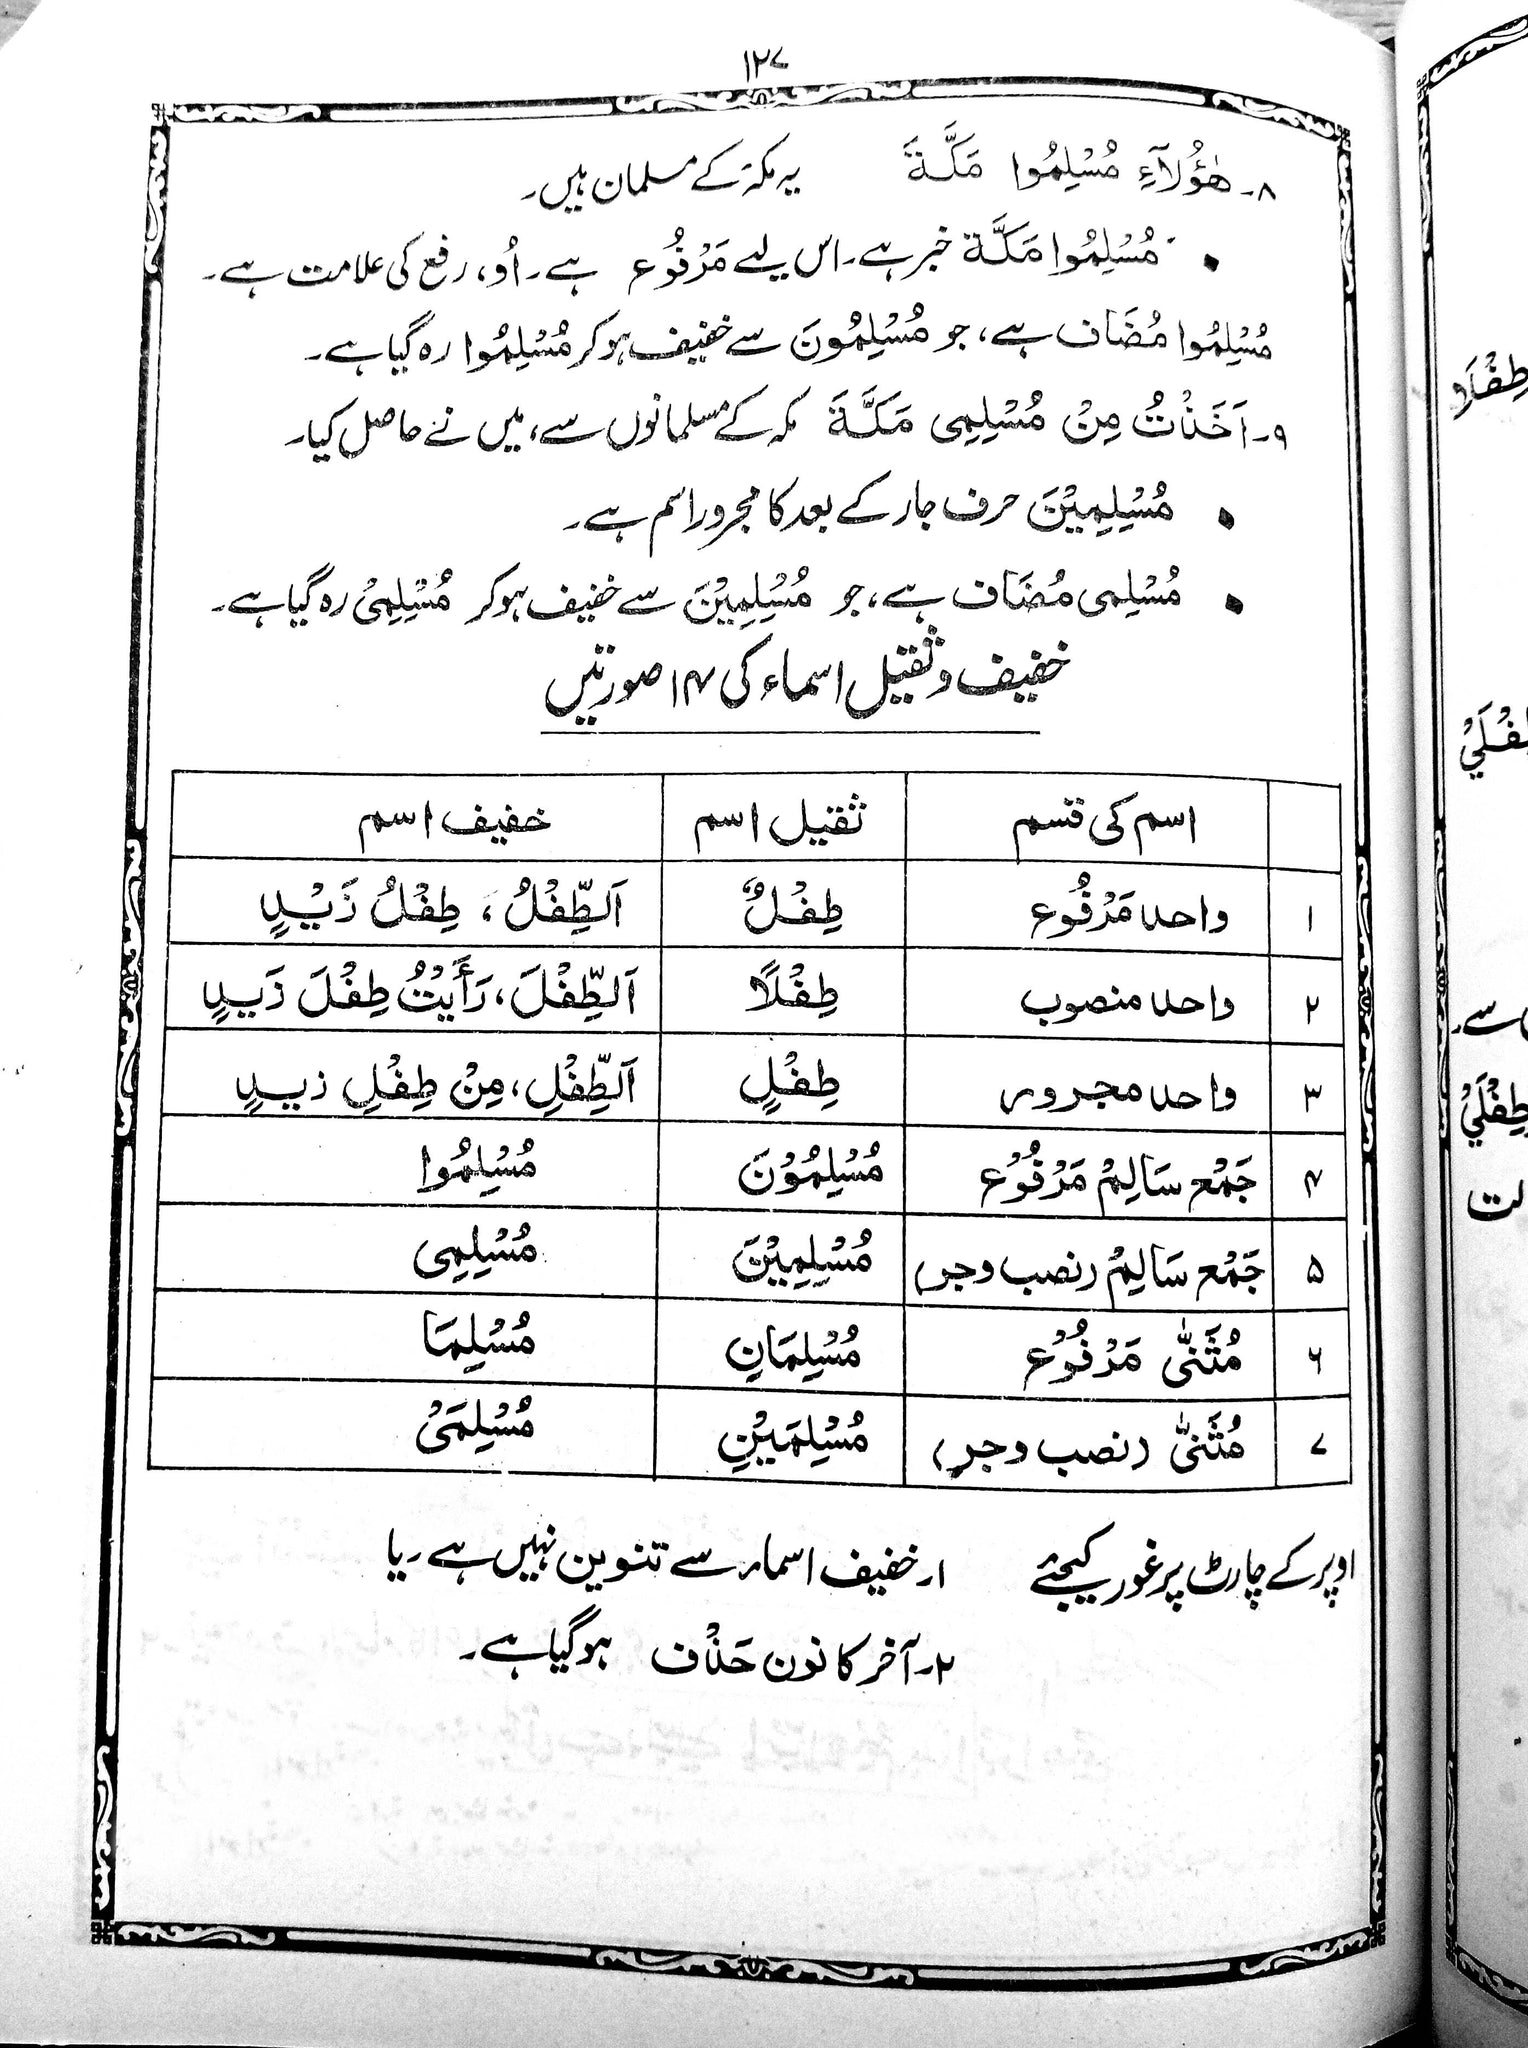 ۱۲۷
۸۔ هٰؤُلَآءِ مُسْلِمُوا مَكَّةَ یہ مکہ کے مسلمان ہیں۔
• مُسْلِمُوا مَكَّة خبر ہے۔ اس لیے مَرْفُوع ہے۔ اُو، رفع کی علامت ہے۔
مُسْلِمُوا مُضَاف ہے، جو مُسْلِمُونَ سے خفیف ہو کر مُسْلِمُوا رہ گیا ہے۔
۹۔ اَخَذْتُ مِنْ مُسْلِمِی مَكَّةَ مکہ کے مسلمانوں سے، میں نے حاصل کیا۔
• مُسْلِمِیْنَ حرف جار کے بعد کا مجرور اسم ہے۔
• مُسْلِمی مُضَاف ہے، جو مُسْلِمِیْنَ سے خفیف ہو کر مُسْلِمِیْ رہ گیا ہے۔
خفیف و ثقیل اسماء کی ۱۴ صورتیں
اسم کی قسم ثقیل اسم خفیف اسم
۱ واحد مَرْفُوع طِفْلٌ اَلطِّفْلُ ، طِفْلُ زَیْدٍ
۲ واحد منصوب طِفْلًا اَلطِّفْلَ ، رَأَیْتُ طِفْلَ زَیدٍ
۳ واحد مجرور طِفْلٍ اَلطِّفْلِ ، مِنْ طِفْلِ زیدٍ
۴ جَمْع سَالِمْ مَرْفُوْع مُسْلِمُوْنَ مُسْلِمُوا
۵ جَمْع سَالِمْ (نصب و جر) مُسْلِمِیْنَ مُسْلِمِی
۶ مُثَنّٰی مَرْفُوْع مُسْلِمَانِ مُسْلِمَا
۷ مُثَنّٰی (نصب و جر) مُسْلِمَیْنِ مُسْلِمَیْ
اوپر کے چارٹ پر غور کیجئے ۱۔ خفیف اسماء سے تنوین نہیں ہے۔ یا
۲۔ آخر کا نون حَذْف ہو گیا ہے۔
طِفْلَا
طِفْلَيْ
سے۔
طِفْلَيْ